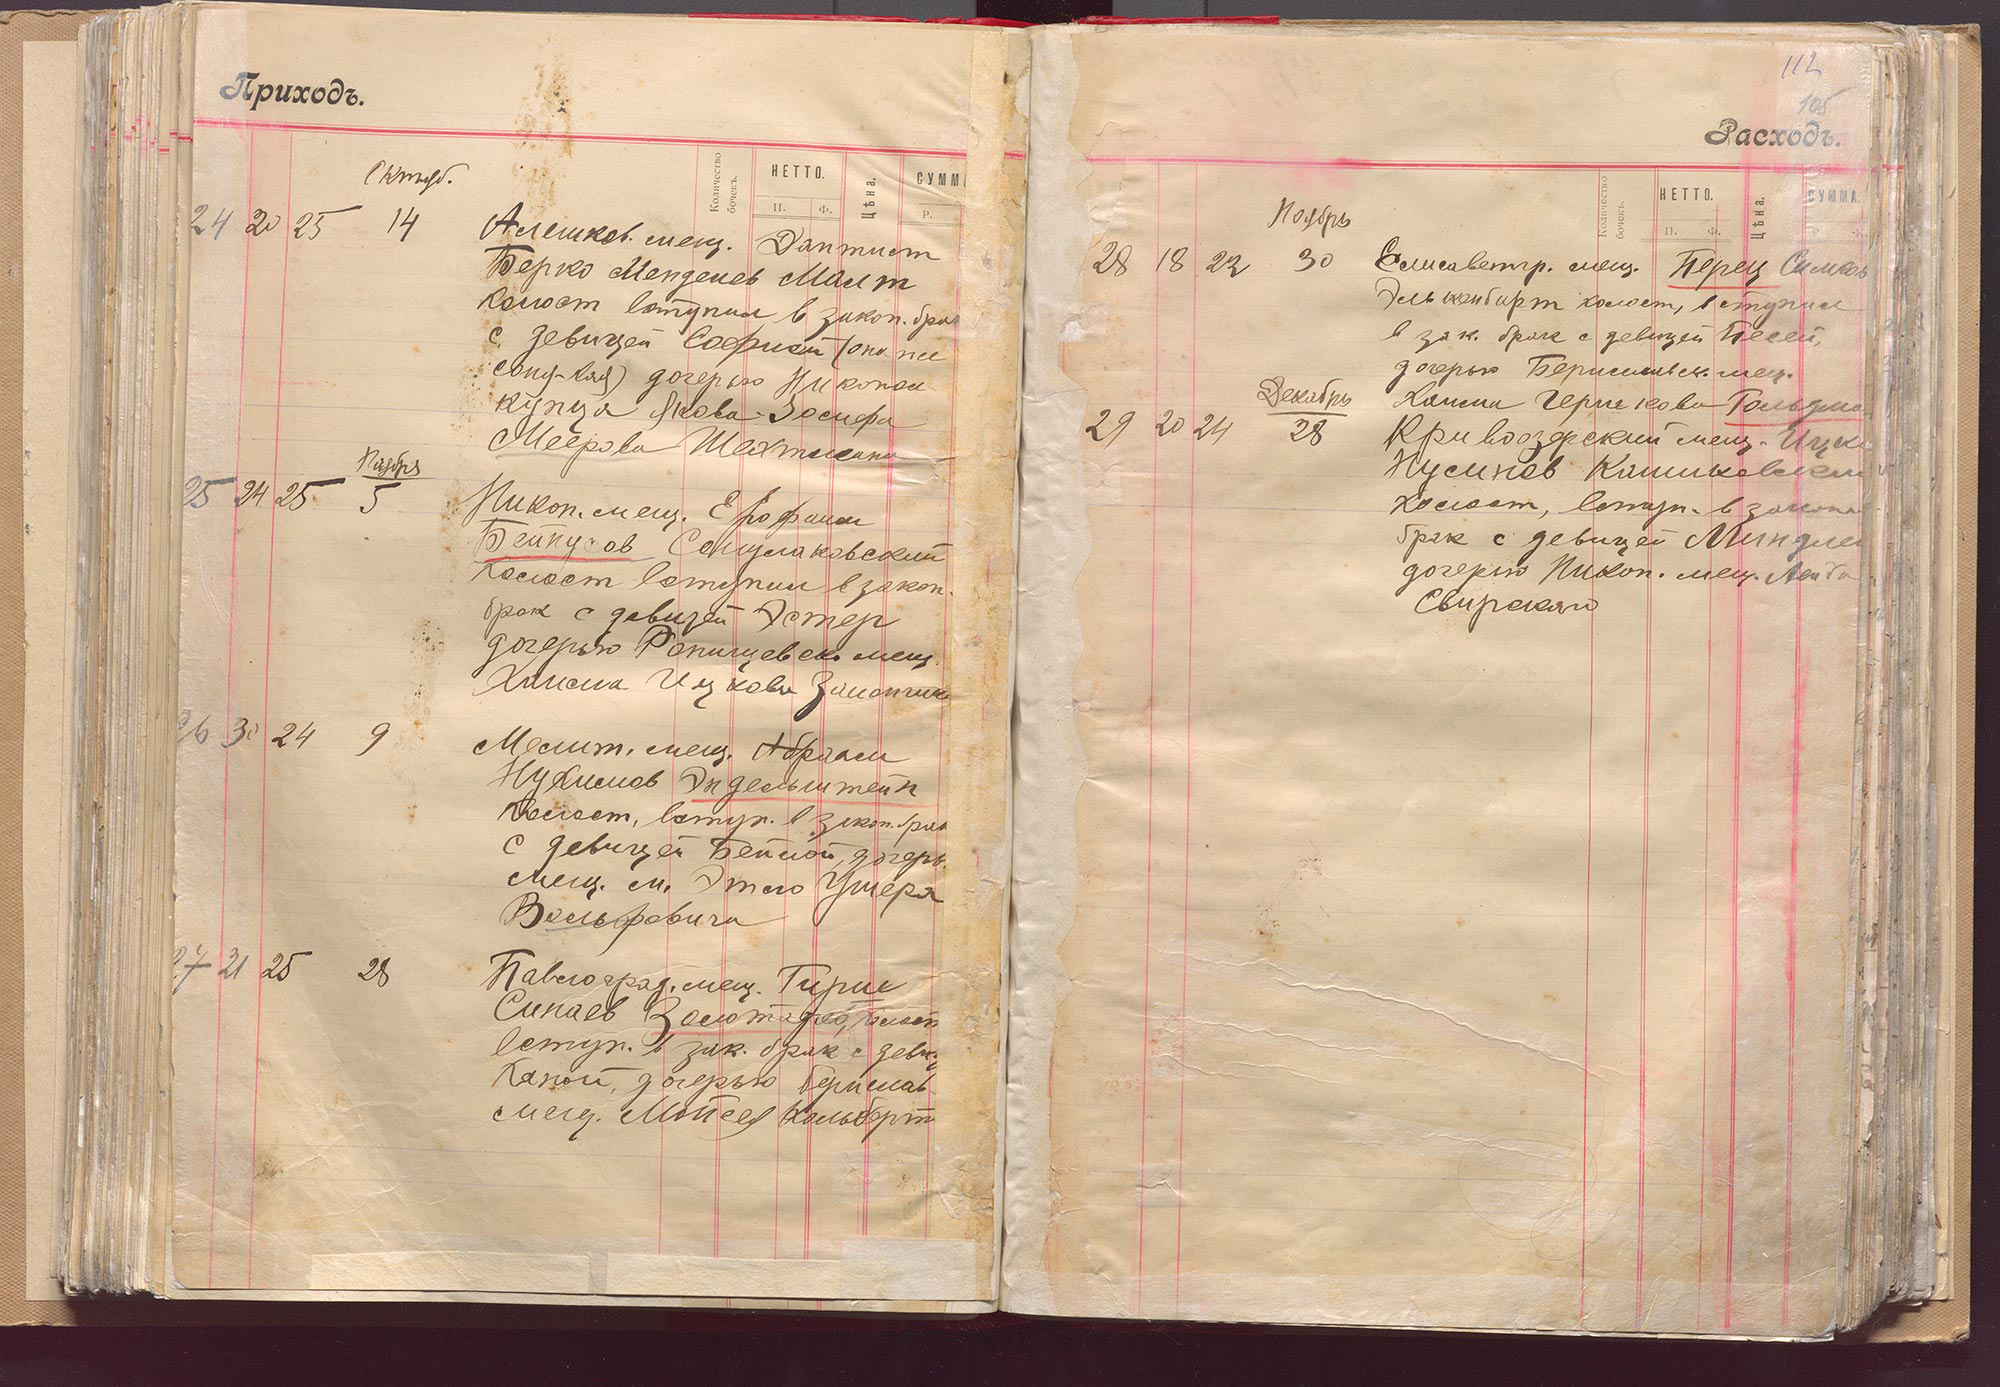 Приходъ.
Количество бочекъ.
НЕТТО.
П. Ф.
Цѣна.
СУММ
Р.
Октябр.
24 20 25 14 Алешков. мещ. Дантист
Берко Менделев Малт
холост вступил в закон. брак
с девицей Софией (она же
) дочерью Никопол
купца Якова-Зосифа
Меерова Шехтмана
Ноябрь
25 24 25 5 Никоп. мещ. Ерофаим
Бейнусов
холост вступил в закон.
брак с девицей Эстер
дочерью мещ.
Хаима Ицкова
26 30 24 9 Мелит. мещ. Абрам
Нухимов Эйдельштейн
холост, вступ. в закон. брак
с девицей Бейлой, дочерь.
мещ. м. Ушера
Вольфовича
27 21 25 28 Павлоград. мещ. Гирш
Синаев холост
вступ. в зак. брак с девиц
Ханой, дочерью Берислав
мещ. Мойсея Кальберт
112
105
Расходъ.
Количество бочекъ.
НЕТТО.
П. Ф.
Цѣна.
СУММА.
Р. К.
Ноябрь
28 18 22 30 Елисаветгр. мещ. Перец Симхов
холост, вступил
в зак. брак с девицей Песей,
дочерью Бериславск. мещ.
Хаима Гершкова Гольдма
Декабрь
29 20 24 28 Кривоозерский мещ. Ицк
Нусинов
холост, вступ. в законн
брак с девицей Миндлей
дочерью Никоп. мещ. Лейба
Свирского